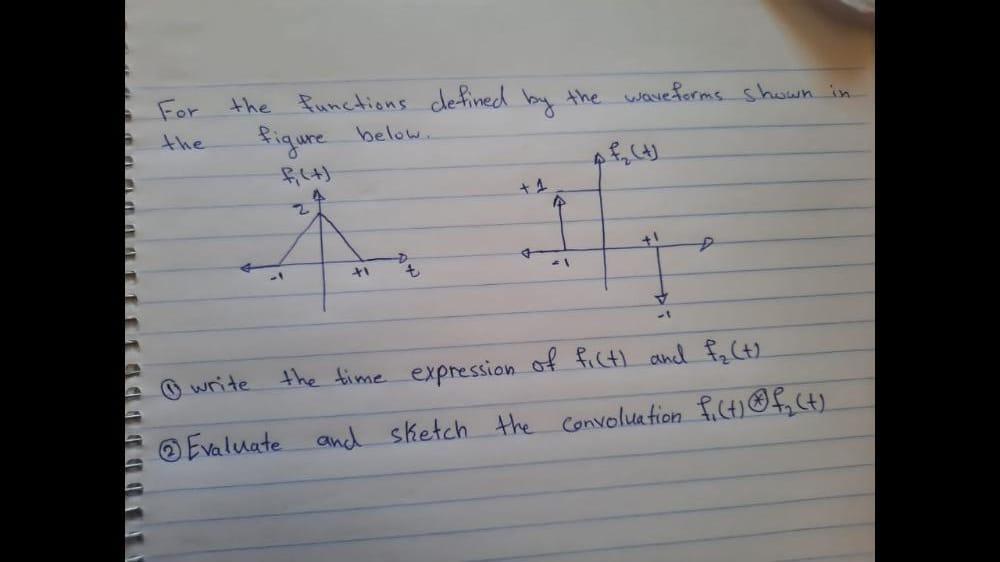 For the functions defined by the waveforms shown in
the figure below.
f₁(t)
2
-1
+1
t
f₂(t)
+1
-1
+1
-1
① write the time expression of f₁(t) and f₂(t)
② Evaluate and sketch the convoluation f₁(t) ⊛ f₂(t)